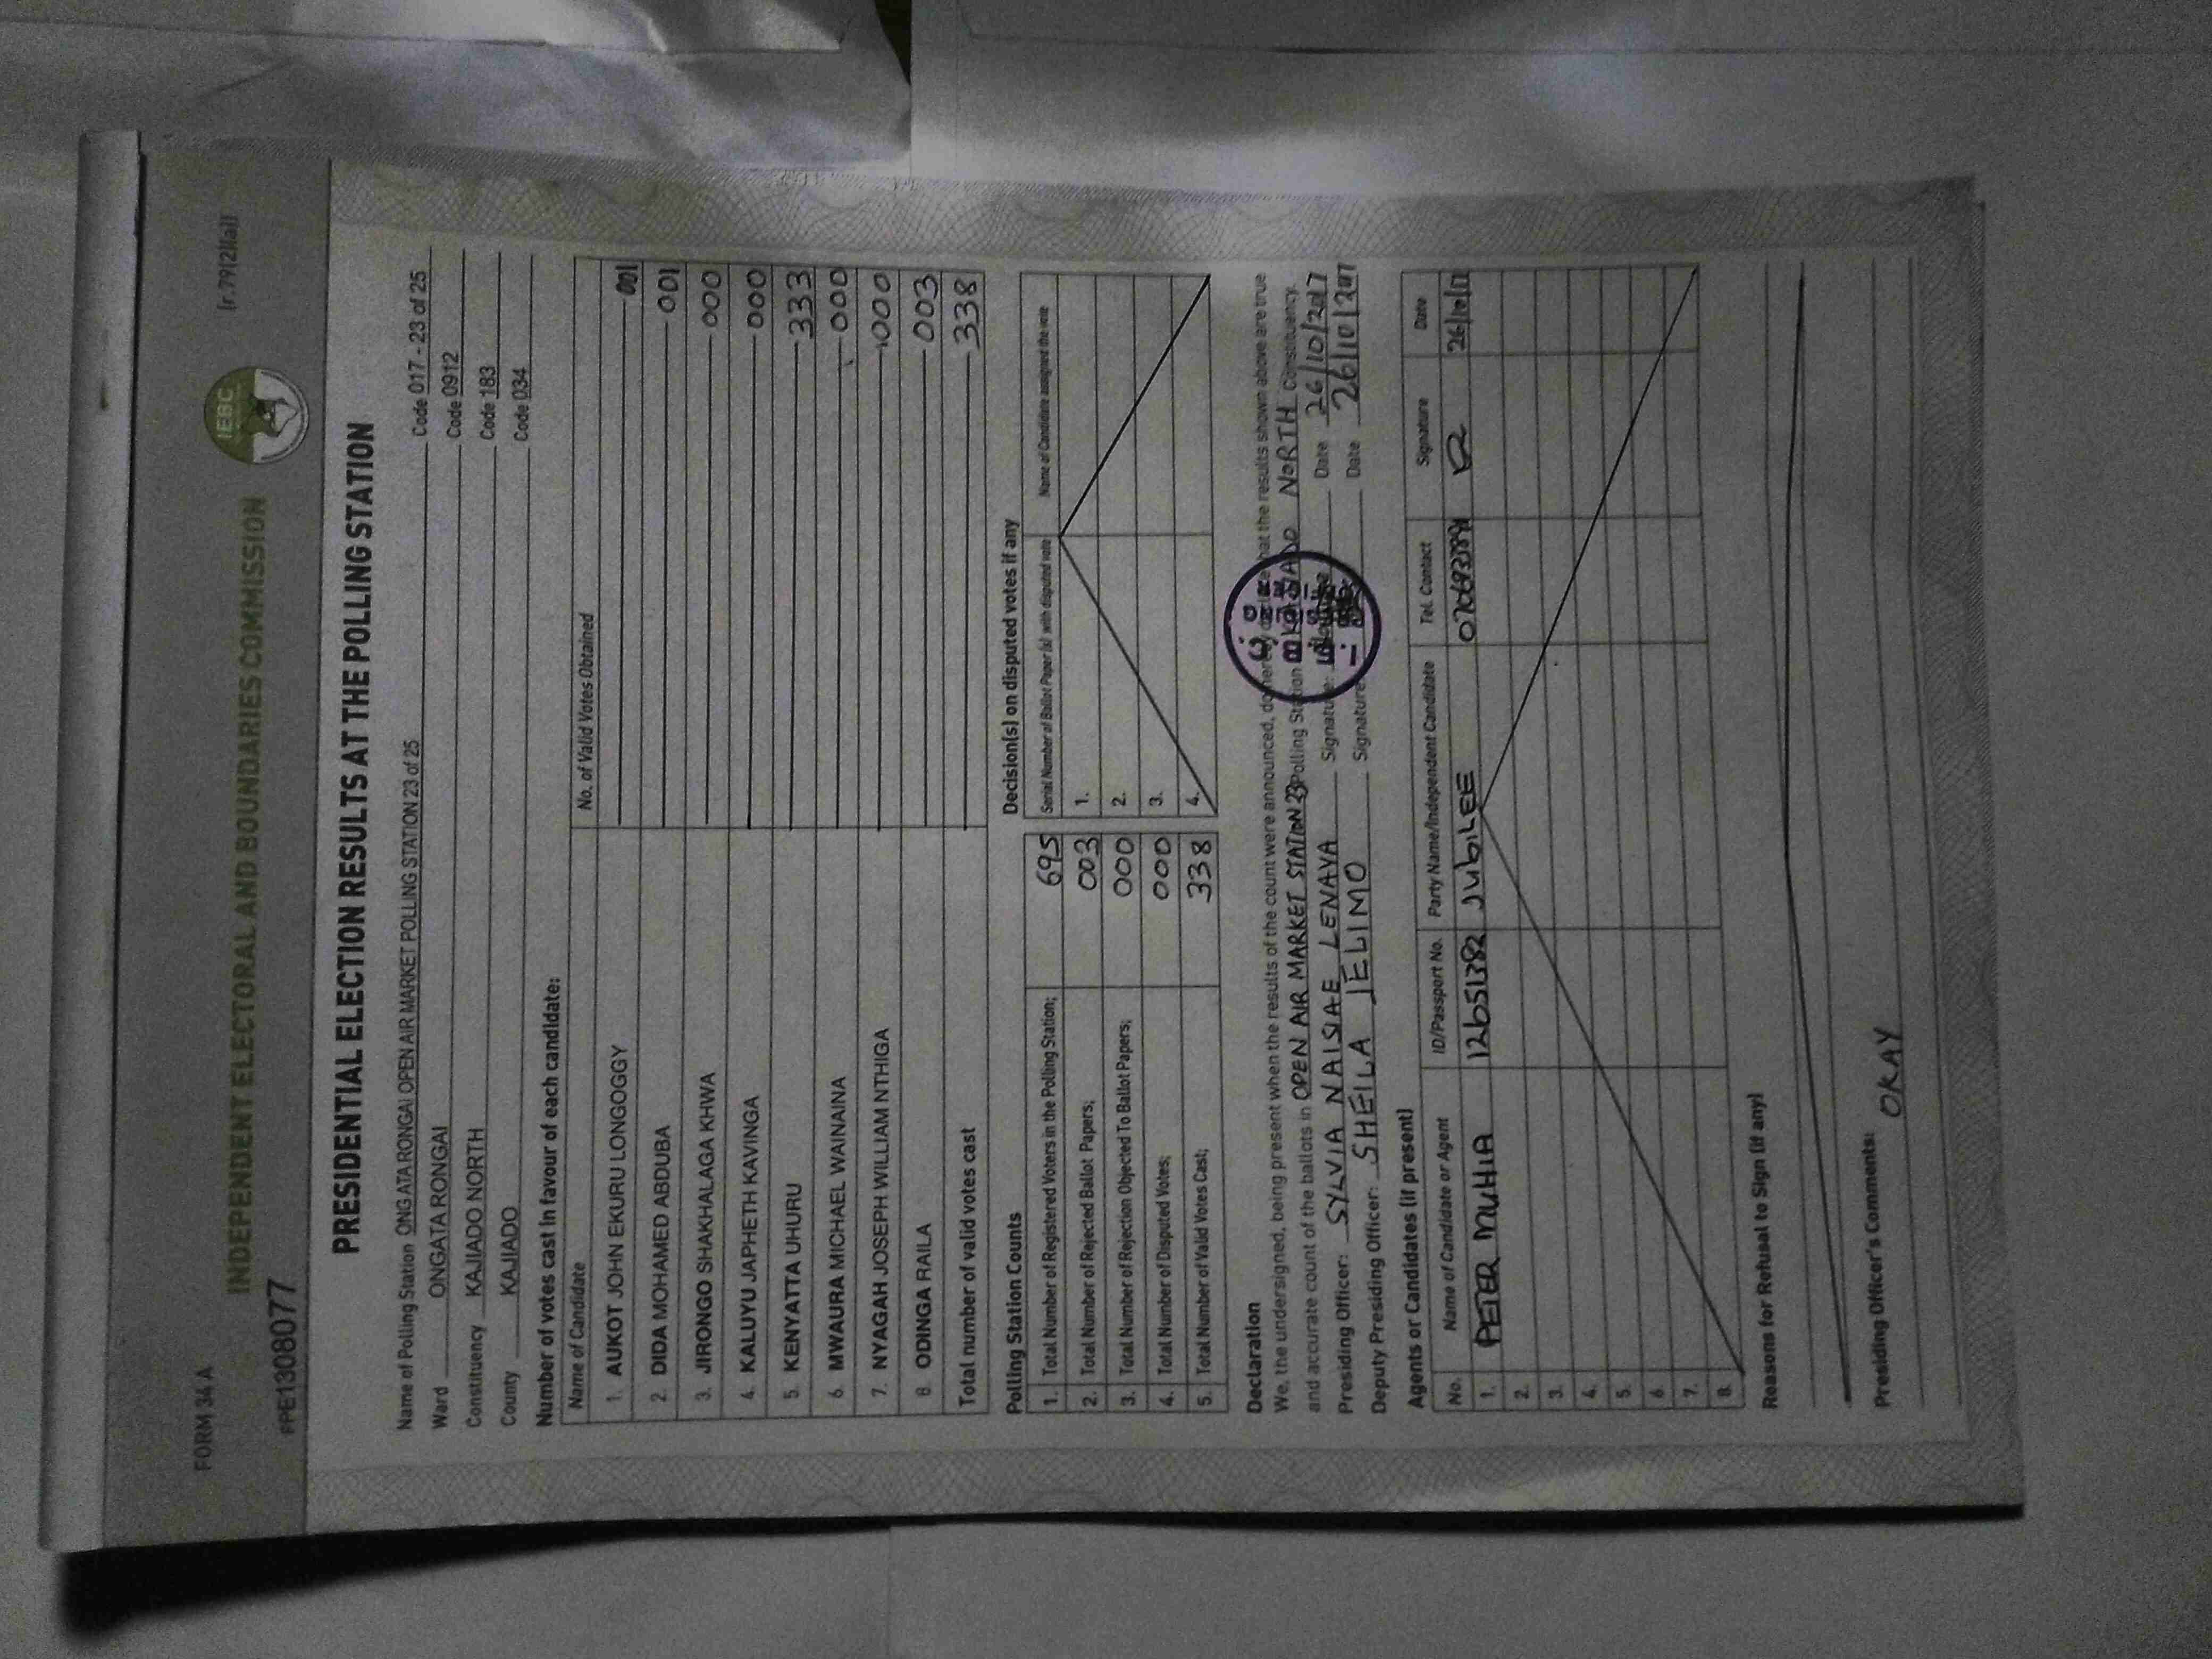 FORM 34 A
(r.79(2)(a))
INDEPENDENT ELECTORAL AND BOUNDARIES COMMISSION
IEBC
#PE1308077
PRESIDENTIAL ELECTION RESULTS AT THE POLLING STATION
Name of Polling Station ONGATA RONGAI OPEN AIR MARKET POLLING STATION 23 of 25 Code 017 - 23 of 25
Ward ONGATA RONGAI Code 0912
Constituency KAJIADO NORTH Code 183
County KAJIADO Code 034
Number of votes cast in favour of each candidate:
Name of Candidate No. of Valid Votes Obtained
1. AUKOT JOHN EKURU LONGOGGY 001
2. DIDA MOHAMED ABDUBA 001
3. JIRONGO SHAKHALAGA KHWA 000
4. KALUYU JAPHETH KAVINGA 000
5. KENYATTA UHURU 333
6. MWAURA MICHAEL WAINAINA 000
7. NYAGAH JOSEPH WILLIAM NTHIGA 000
8. ODINGA RAILA 003
Total number of valid votes cast 338
Polling Station Counts
1. Total Number of Registered Voters in the Polling Station; 695
2. Total Number of Rejected Ballot Papers; 003
3. Total Number of Rejection Objected To Ballot Papers; 000
4. Total Number of Disputed Votes; 000
5. Total Number of Valid Votes Cast; 338
Decision(s) on disputed votes if any
Serial Number of Ballot Paper (s) with disputed vote Name of Candidate assigned the vote
1.
2.
3.
4.
Declaration
We, the undersigned, being present when the results of the count were announced, do hereby declare that the results shown above are true
and accurate count of the ballots in OPEN AIR MARKET STATION 23 Polling Station NORTH Constituency.
Presiding Officer: SYLVIA NAISIAE LENAYA Signature: Date 26/10/2017
Deputy Presiding Officer: SHEILA JELIMO Signature: Date 26/10/2017
Agents or Candidates (if present)
No. Name of Candidate or Agent ID/Passport No. Party Name/Independent Candidate Tel. Contact Signature Date
1. PETER MUHIA 12651382 JUBILEE 26/10/17
2.
3.
4.
5.
6.
7.
8.
Reasons for Refusal to Sign (if any)
Presiding Officer's Comments:
OKAY